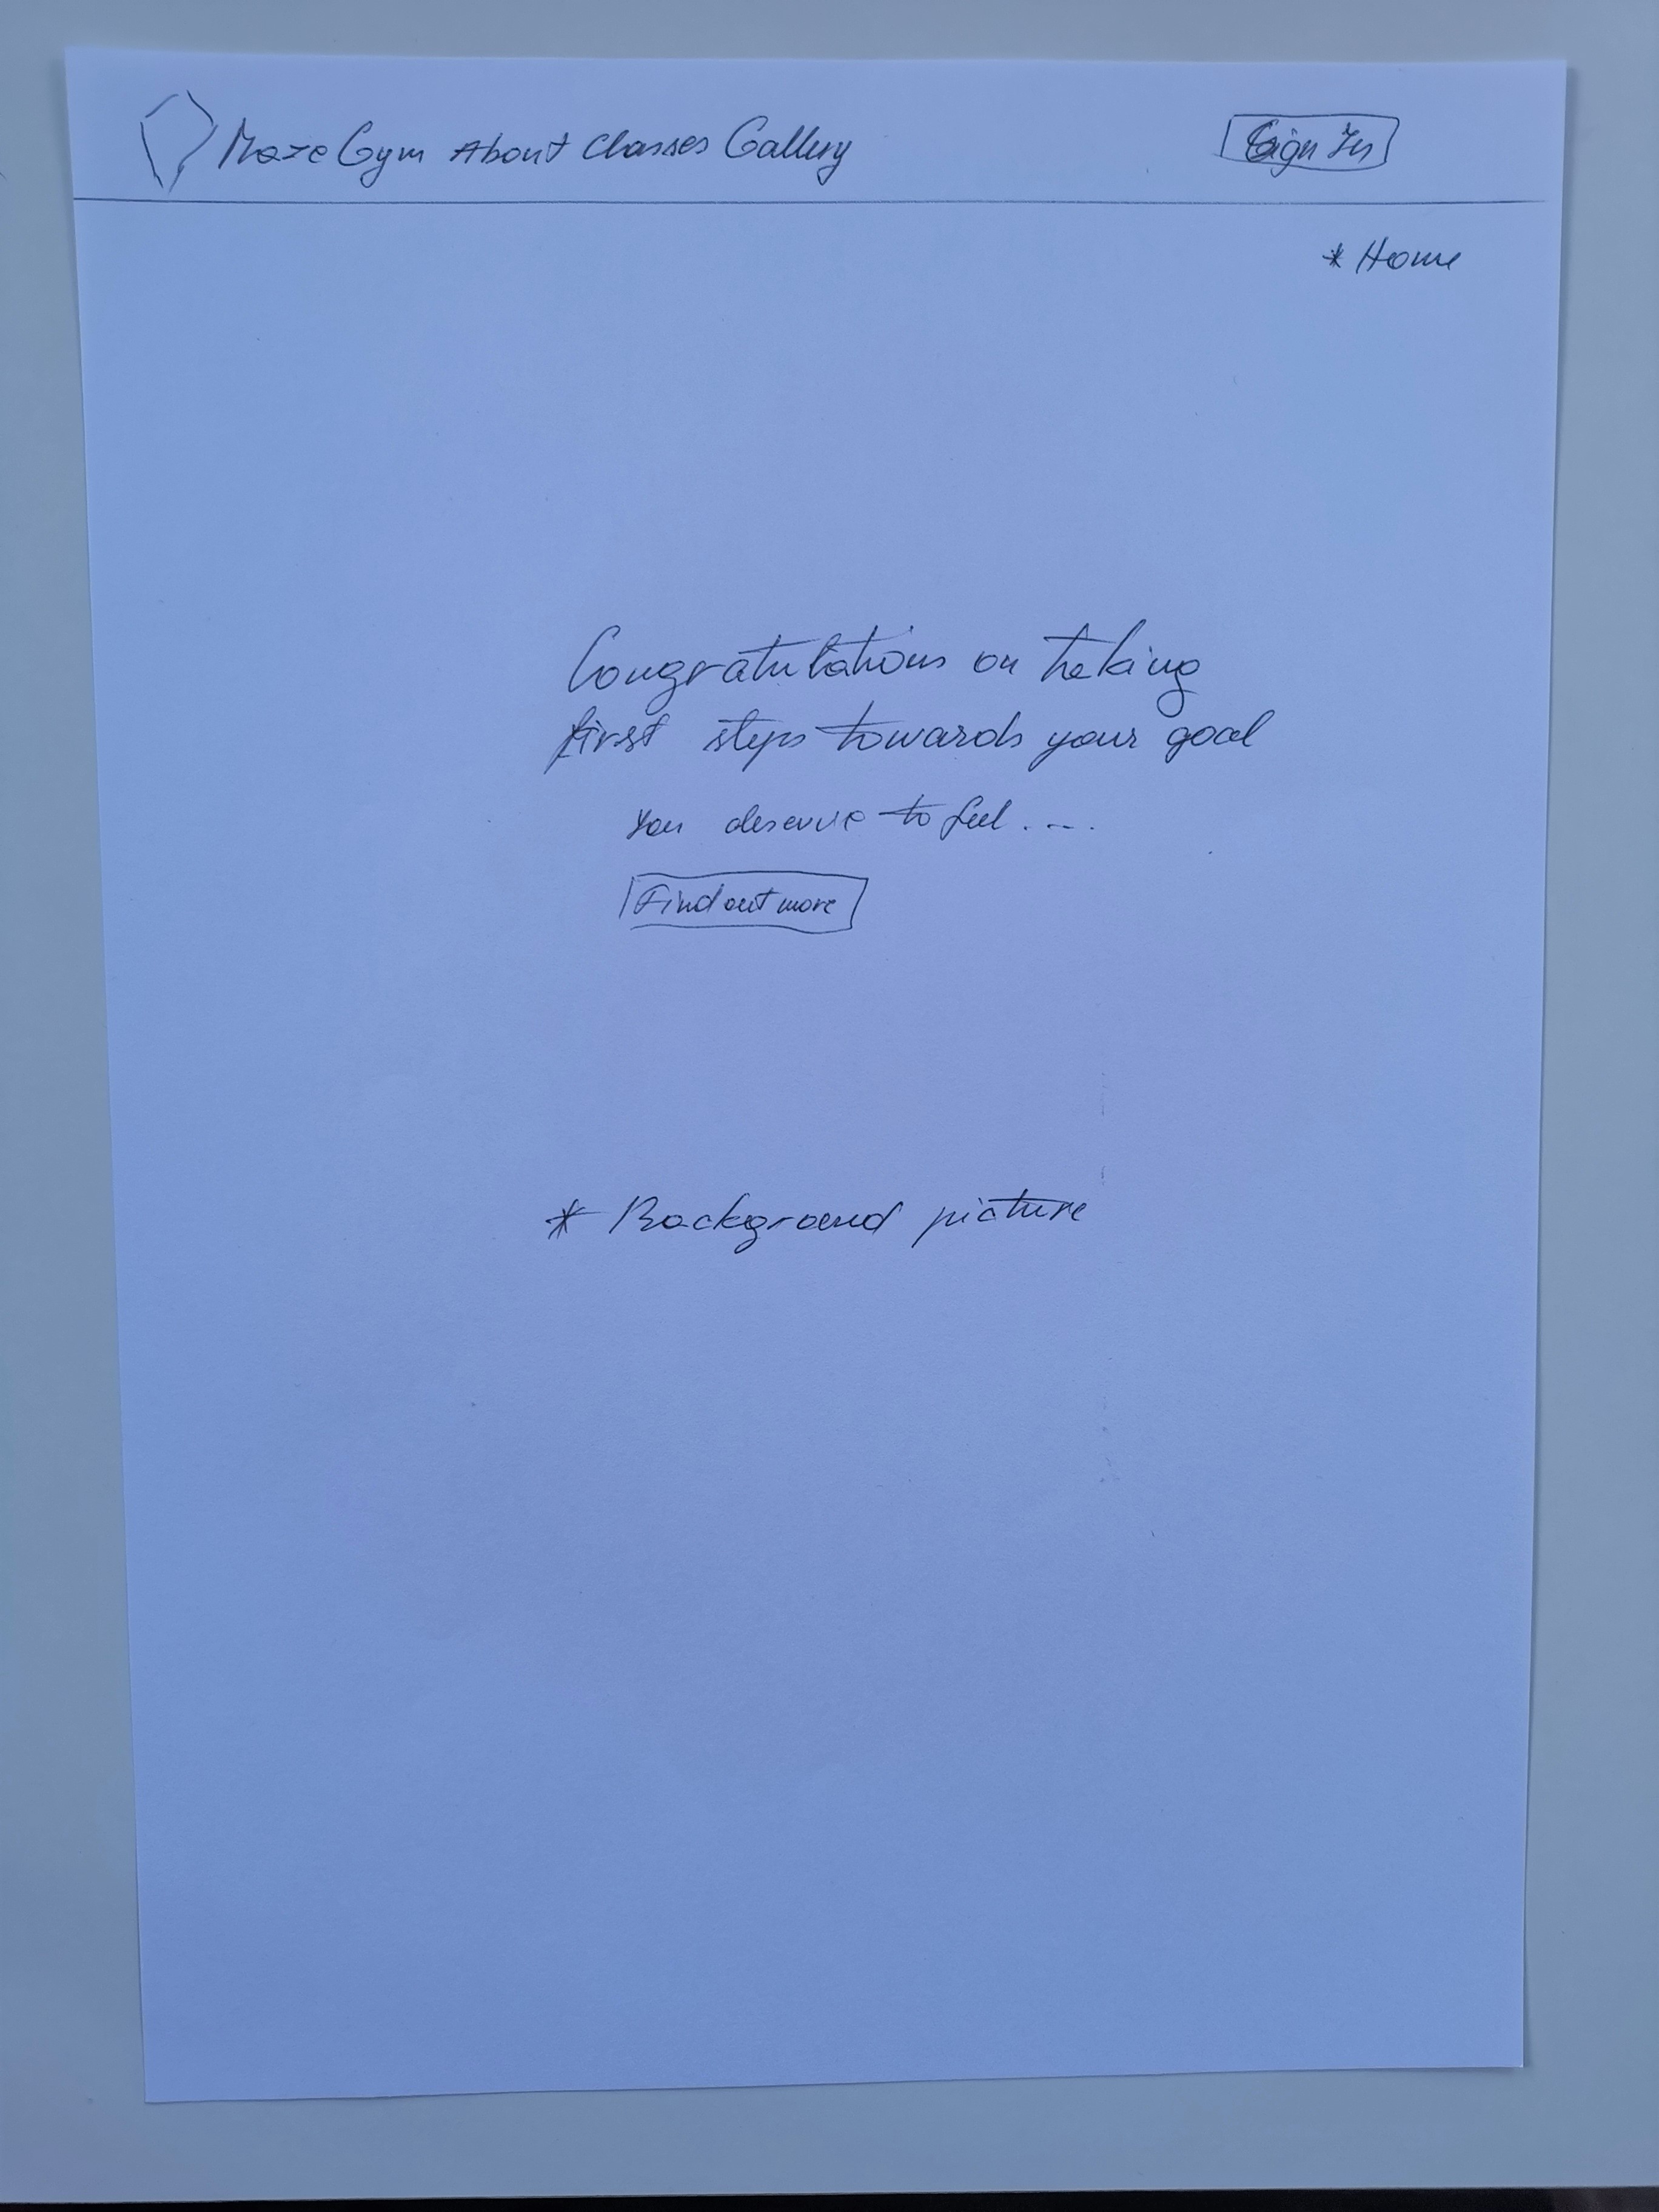 Maze Gym About Classes Gallery Sign In
* Home
Congratulations on taking
first steps towards your goal
You deserve to feel....
Find out more
* Background picture